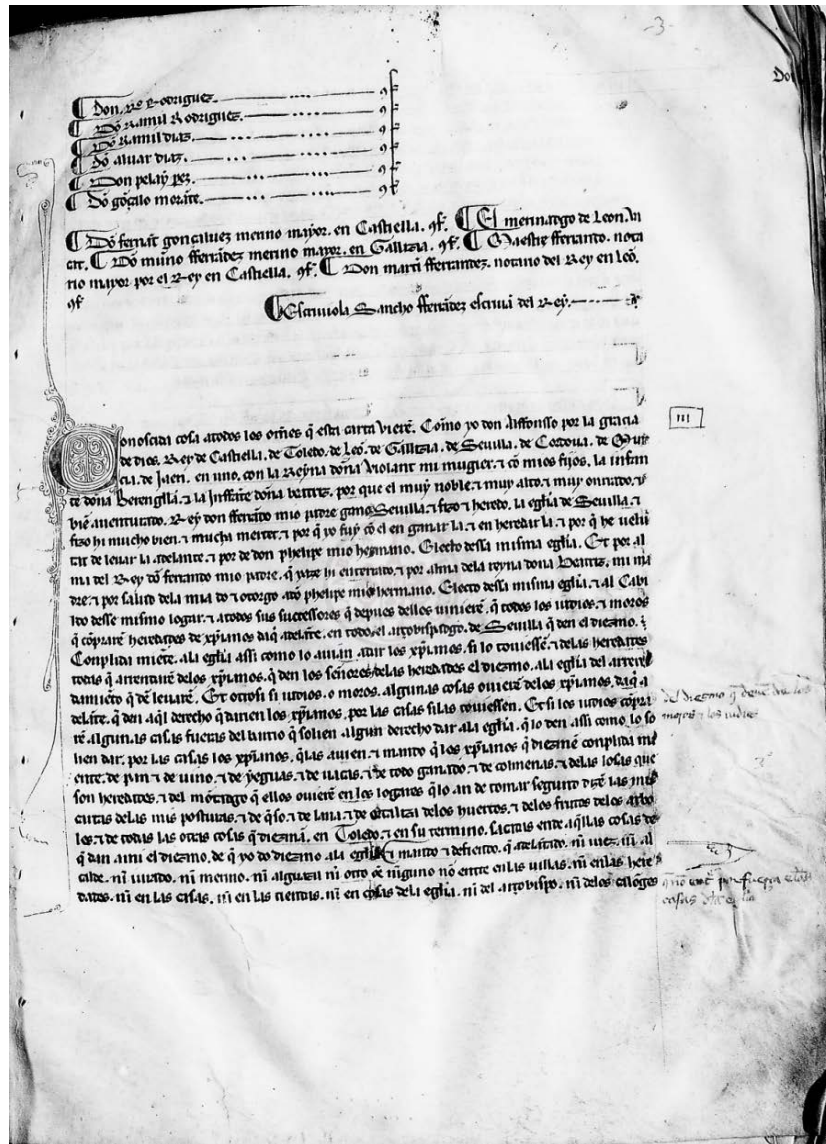 -3-
Don
Don Ro Rodriguez. qf
Dõ Ramil Rodriguez. qf
Dõ Ramil diaz. qf
dõ aluar diaz. qf
Don pelaÿ pez. qf
Dõ gõçalo morãte. qf
Dõ ferrãt gonçaluez merino mayor. en Castiella. qf. El merinadgo de Leon. Va
cat. Dõ muño fferrãdez merino mayor. en Gallizia. qf. Maestre fferrando. nota
rio mayor por el Rey en Castiella. qf. Don martĩ fferrandez. notario del Rey en Leõ.
qf
Escriuiola Sancho fferrãdez escriuã del Rey.
III
Conoscida cosa atodos los omes q̃ esta carta vierẽ. Como yo don Alffonsso por la gracia
de dios. Rey de Castiella. de Toledo. de Leõ. de Gallizia. de Seuilla. de Cordoua. de Mur
cia. de Jaen. en uno. con la Reyna doña violant mi mugier. ⁊ cõ mios fijos. la infan
te doña Berengĩla. ⁊ la Inffante doña beatriz. por que el muy noble. ⁊ muy alto. ⁊ muy onrrado. ⁊
biẽ auenturado. Rey don fferrãdo mio padre gano Seuilla. ⁊ fizo ⁊ heredo. la egl̃ia de Seuilla. ⁊
fizo hi mucho bien. ⁊ mucha merced. ⁊ por q̃ yo fuy cõ el en ganar la. ⁊ en heredar la. ⁊ por q̃ he uelũ
tat de leuar la adelante. ⁊ por de don phelipe mio hermano. Electo dessa misma egl̃ia. Et por al
ma del Rey dõ ferrando mio padre. q̃ yaze hi enterrado. ⁊ por alma dela reyna dona Beatriz. mi ma
dre. ⁊ por salud dela mia do ⁊ otorgo adõ phelipe mio hermano. Electo dessa misma egl̃ia. ⁊ al Cabi
ldo desse mismo logar. ⁊ atodos sus successores q̃ depues dellos uinierẽ. q̃ todos los iudios. ⁊ moros
q̃ cõprarẽ heredades de xp̃ianos daq̃ adelãte. en todo. el arçobispadgo. de Seuilla q̃ den el diezmo.
Conplida miẽte. ala egl̃ia assi como lo auiãn adar los xp̃ianos. si lo touiessẽ. ⁊ delas heredades
todas q̃ arrendarẽ delos xp̃ianos. q̃ den los señores delas heredades el diezmo. ala egl̃ia del arren
damiẽto q̃ dẽ leuarẽ. Et otrosi si iudios. o moros. algunas cosas ouierẽ delos xp̃ianos. daq̃ a
delãte. q̃ den aq̃l derecho q̃ darien los xp̃ianos. por las casas si las touiessẽn. Et si los iudios cõpra
rẽ. algunas casas fueras del barrio q̃ solien algun derecho dar ala egl̃ia. q̃ lo den assi como. lo so
lien dar. por las casas los xp̃ianos. q̃ las auien. ⁊ mando q̃ los xp̃ianos q̃ diezmẽ conplida mi
ente. de pan ⁊ de uino. ⁊ de yeguas. ⁊ de uacas. ⁊ de todo ganado. ⁊ de colmenas. ⁊ delas cosas que
son heredades. ⁊ del mõtadgo q̃ ellos ouierẽ en los logares q̃ lo an de tomar segund dizẽ las mis
cartas delas mis posturas. ⁊ de q̃so. ⁊ de lana. ⁊ de ortaliza delos huertos. ⁊ delos frutos delos arbo
les. ⁊ de todas las otras cosas q̃ diezmã. en Toledo. ⁊ en su termino. sacadas ende aq̃llas cosas de
q̃ dan ami el diezmo. de q̃ yo do diezmo ala egl̃ia ⁊ mando ⁊ defiendo. q̃ adelãtado. nĩ iuez. nĩ al
calde. nĩ iurado. nĩ merino. nĩ alguazil nĩ otro õe nĩguno nõ entre en las uillas. nĩ en las here
dades. nĩ en las casas. nĩ en las tiendas. nĩ en cosas dela egl̃ia. nĩ del arçobispo. nĩ delos calõges
del diezmo q̃ deuẽ dar los
moros ⁊ los iudios
q̃ nõ entrẽ por fuerza en las
casas dla egl̃ia